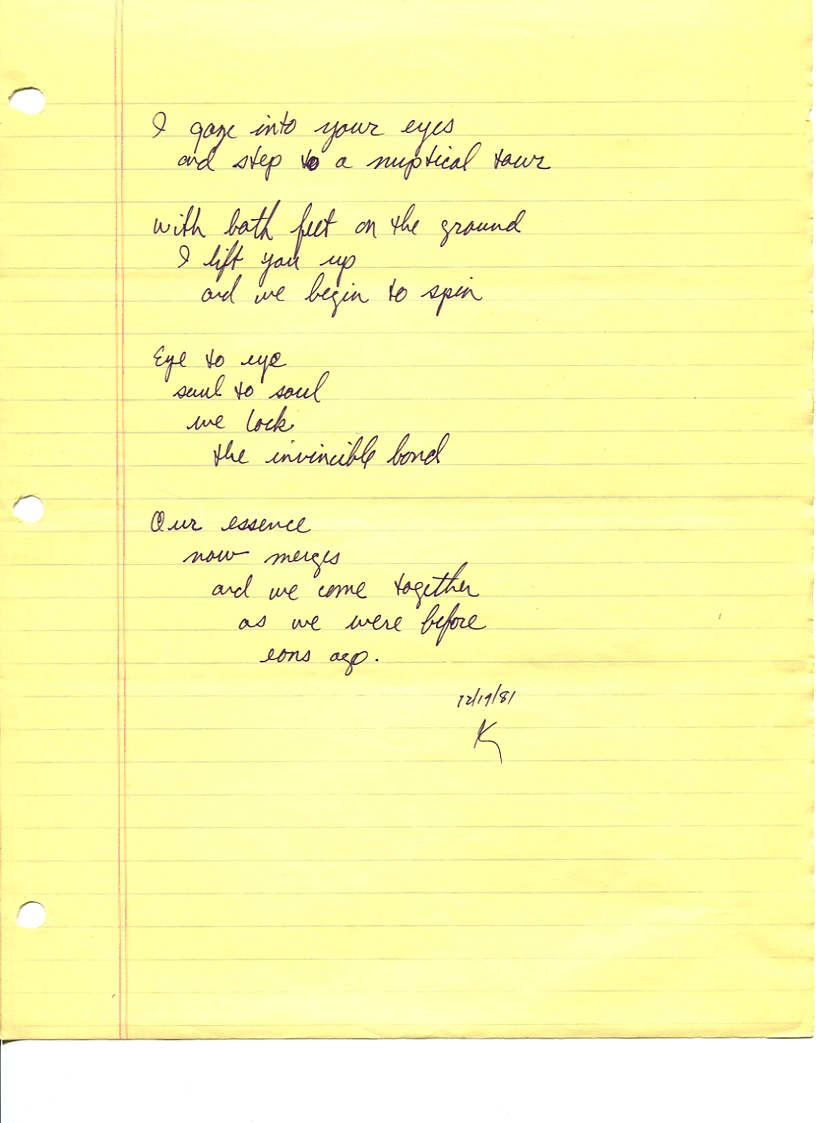 I gaze into your eyes
and step to a nuptical tour
With both feet on the ground
I lift you up
and we begin to spin
Eye to eye
soul to soul
we lock
the invincible bond
Our essence
now merges
and we come together
as we were before
eons ago.
12/19/81
K